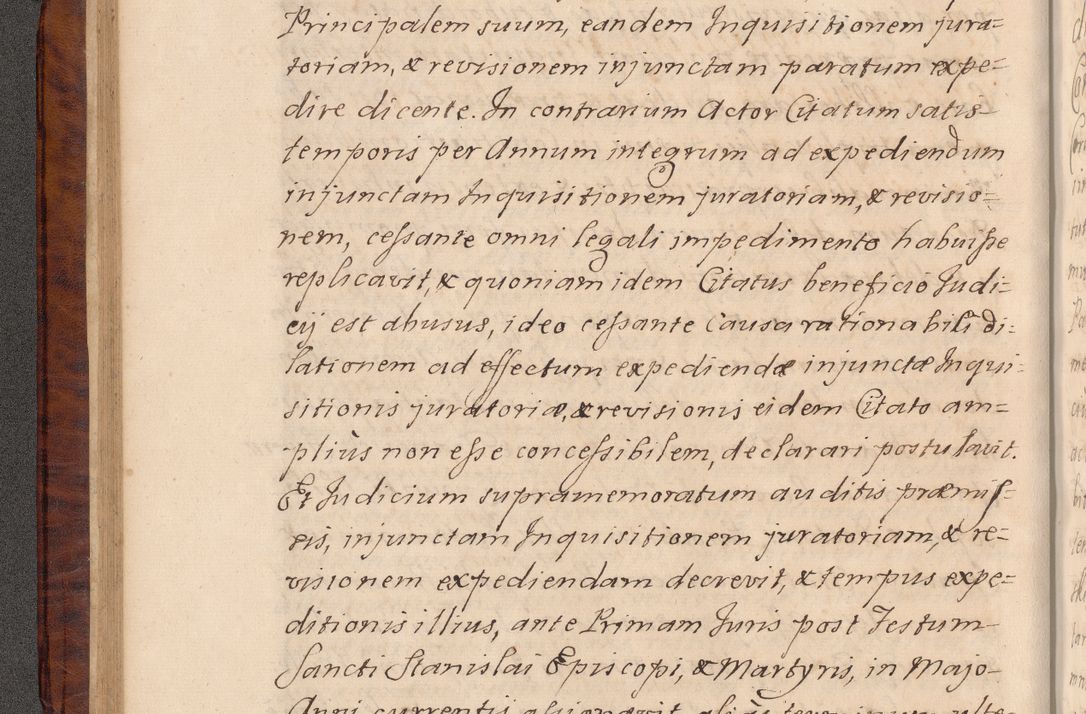 Principalem suum, eandem Inquisitionem jura=
toriam, & revisionem injunctam paratum expe=
dire dicente. In contrarium Actor Citatum satis
temporis per Annum integrum ad expediendum
injunctam Inquisitionem juratoriam, & revisio=
nem, cessante omni legali impedimento habuisse
replicavit, & quoniam idem Citatus beneficio Judi=
cij est abusus, ideo cessante Causa rationabili di=
lationem ad effectum expediendæ injunctæ Inqui=
sitionis juratoriæ, & revisionis eidem Citato am=
pliùs non esse concessibilem, declarari postulavit.
Et Judicium supramemoratum auditis præmis=
sis, injunctam Inquisitionem juratoriam, & re=
visionem expediendam decrevit, & tempus expe=
ditionis illius, ante Primam Juris post Festum
Sancti Stanislai Episcopi, & Martyris, in Majo
Anni currentis